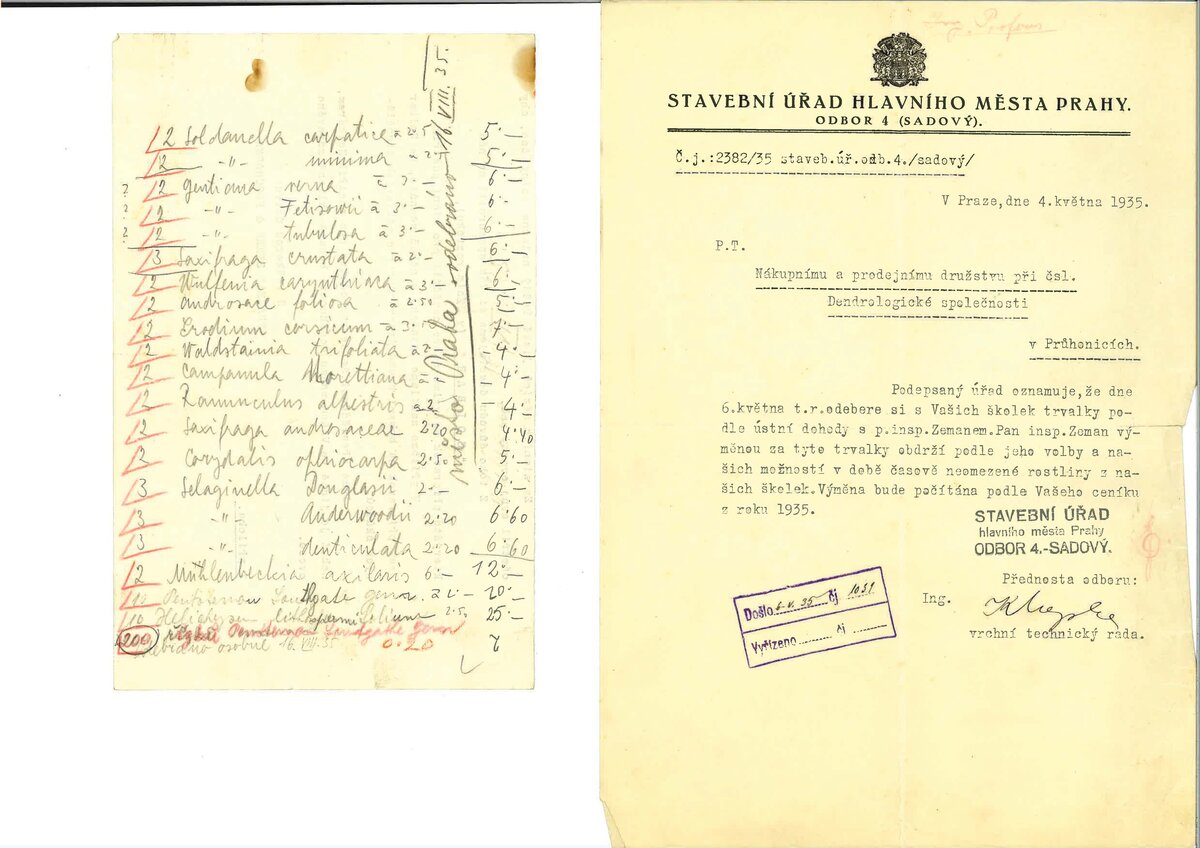 2 Soldanella carpatice à 2·5 5·—
2 -"- minima à 2· 5·—
? 2 gentiana verna à 3·— 6·—
? 2 -"- Fetisowii à 3·— 6·—
? 2 -"- tubulosa à 3·— 6·—
3 Saxifraga crustata à 2·— 6·—
2 Wulfenia carynthiaca à 3·— 6·—
2 androsace foliosa à 2·50 5·—
2 Erodium corsicum à 3·5 7·—
2 Waldstainia trifoliata à 2·— 4·—
2 Campanula Morettiana à 2·— 4·—
2 Ranunculus alpestris à 2· 4·—
2 Saxifraga androsaceae 2·20 4·40
2 Corydalis ophiocarpa 2·50 5·—
3 Selaginella Douglasii 2·— 6·—
3 -"- Anderwoodii 2·20 6·60
3 -"- denticulata 2·20 6·60
2 Mühlenbeckia axilaris 6·— 12·—
10 Southgate gem à 2·— 20·—
10 2·50 25·—
200 Southgate Gem
osobně 16. VIII. 35 0·20
město Praha odebráno 16. VIII. 35.
STAVEBNÍ ÚŘAD HLAVNÍHO MĚSTA PRAHY.
ODBOR 4 (SADOVÝ).
Č.j.:2382/35 staveb.úř.odb.4./sadový/
V Praze,dne 4.května 1935.
P.T.
Nákupnímu a prodejnímu družstvu při čsl.
Dendrologické společnosti
v Průhonicích.
Podepsaný úřad oznamuje,že dne
6.května t.r.odebere si s Vašich školek trvalky po-
dle ústní dohody s p.insp.Zemanem.Pan insp.Zeman vý-
měnou za tyto trvalky obdrží podle jeho volby a na-
šich možností v době časově neomezené rostliny z na-
šich školek.Výměna bude počítána podle Vašeho ceníku
z roku 1935.
STAVEBNÍ ÚŘAD
hlavního města Prahy
ODBOR 4.-SADOVÝ.
Přednosta odboru:
Ing.
vrchní technický rada.
Došlo 6-V. 35 čj 1051
Vyřízeno čj